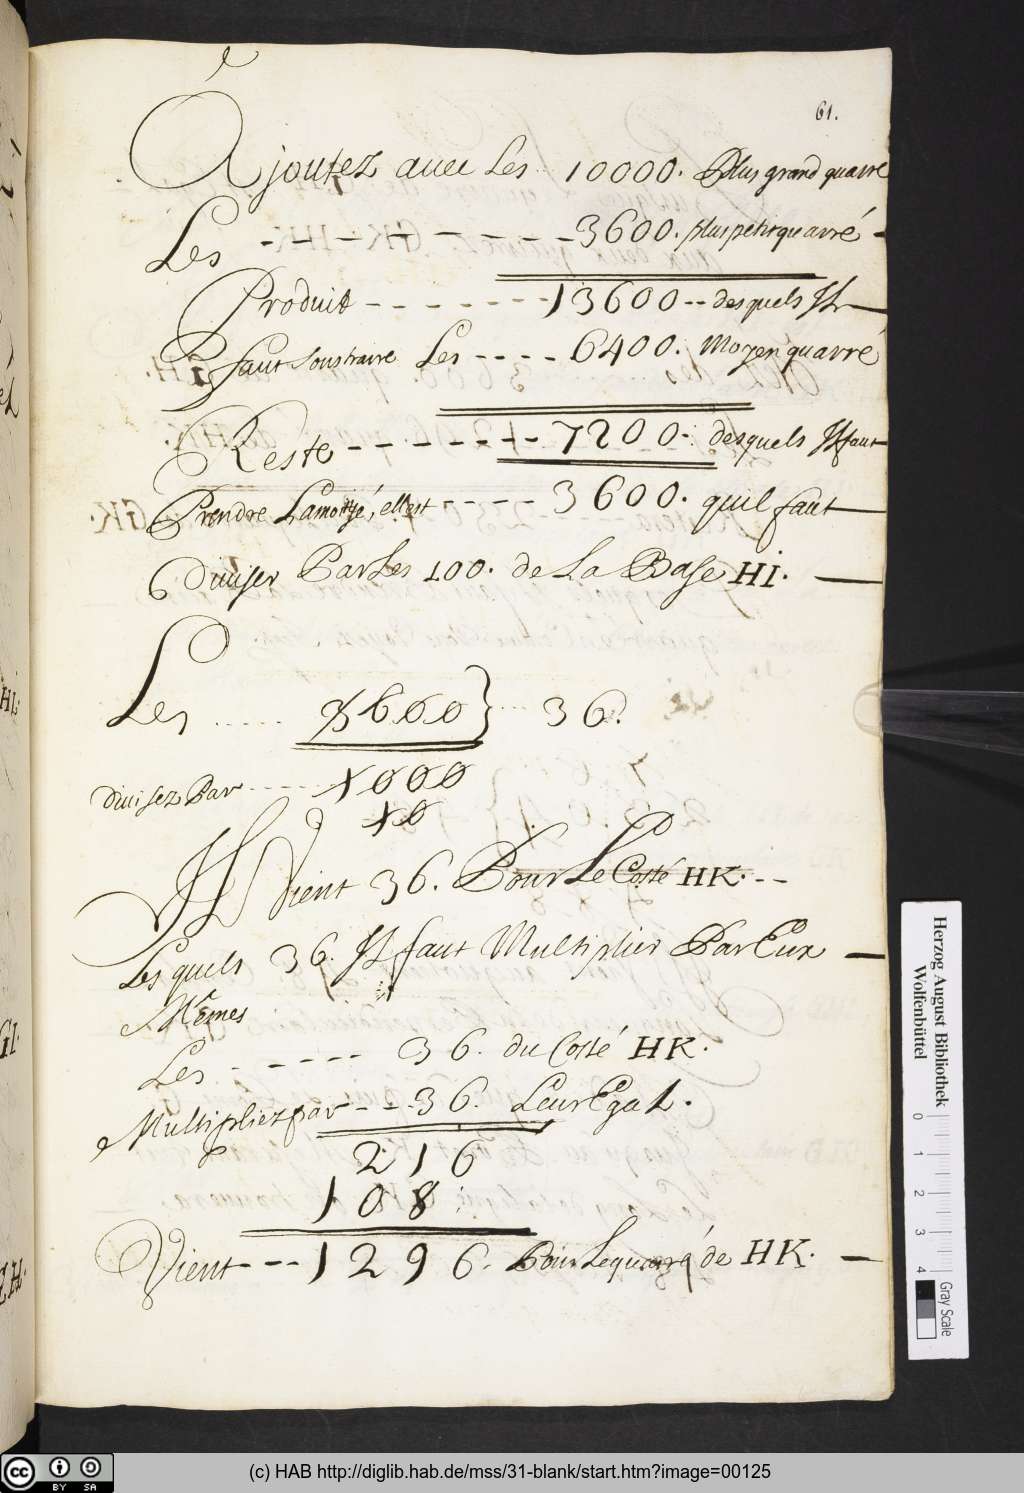 61.
Ajoutez avec Les 10000. Plus grand quarré
Les - - - - - - - 3600. plus petit quarré -
Produit - - - - - - - 13600 -- desquels Il
faut soustraire Les - - - - 6400. Moyen quarré
Reste - - - - - - - 7200. desquels Il faut
Prendre Lamoitjé, ellest - - - - 3600. quil faut
Diuiser Par Les 100. de La Base HI.
Les ..... 3600 } ... 36.
Diuisez Par ..... 1000
10
Il Vient 36. Pour Le Costé HK. --
Lesquels 36. Il faut Multiplier Par Eux
Mêmes
Les - - - - 36. du Costé HK.
Multipliez par - - - 36. Leur Egal.
216
108
Vient - - - 1296. Pour Le quarré de HK.
HI.
GI.
Herzog August Bibliothek
Wolfenbüttel
0 1 2 3 4
Gray Scale
cc BY SA
(c) HAB http://diglib.hab.de/mss/31-blank/start.htm?image=00125